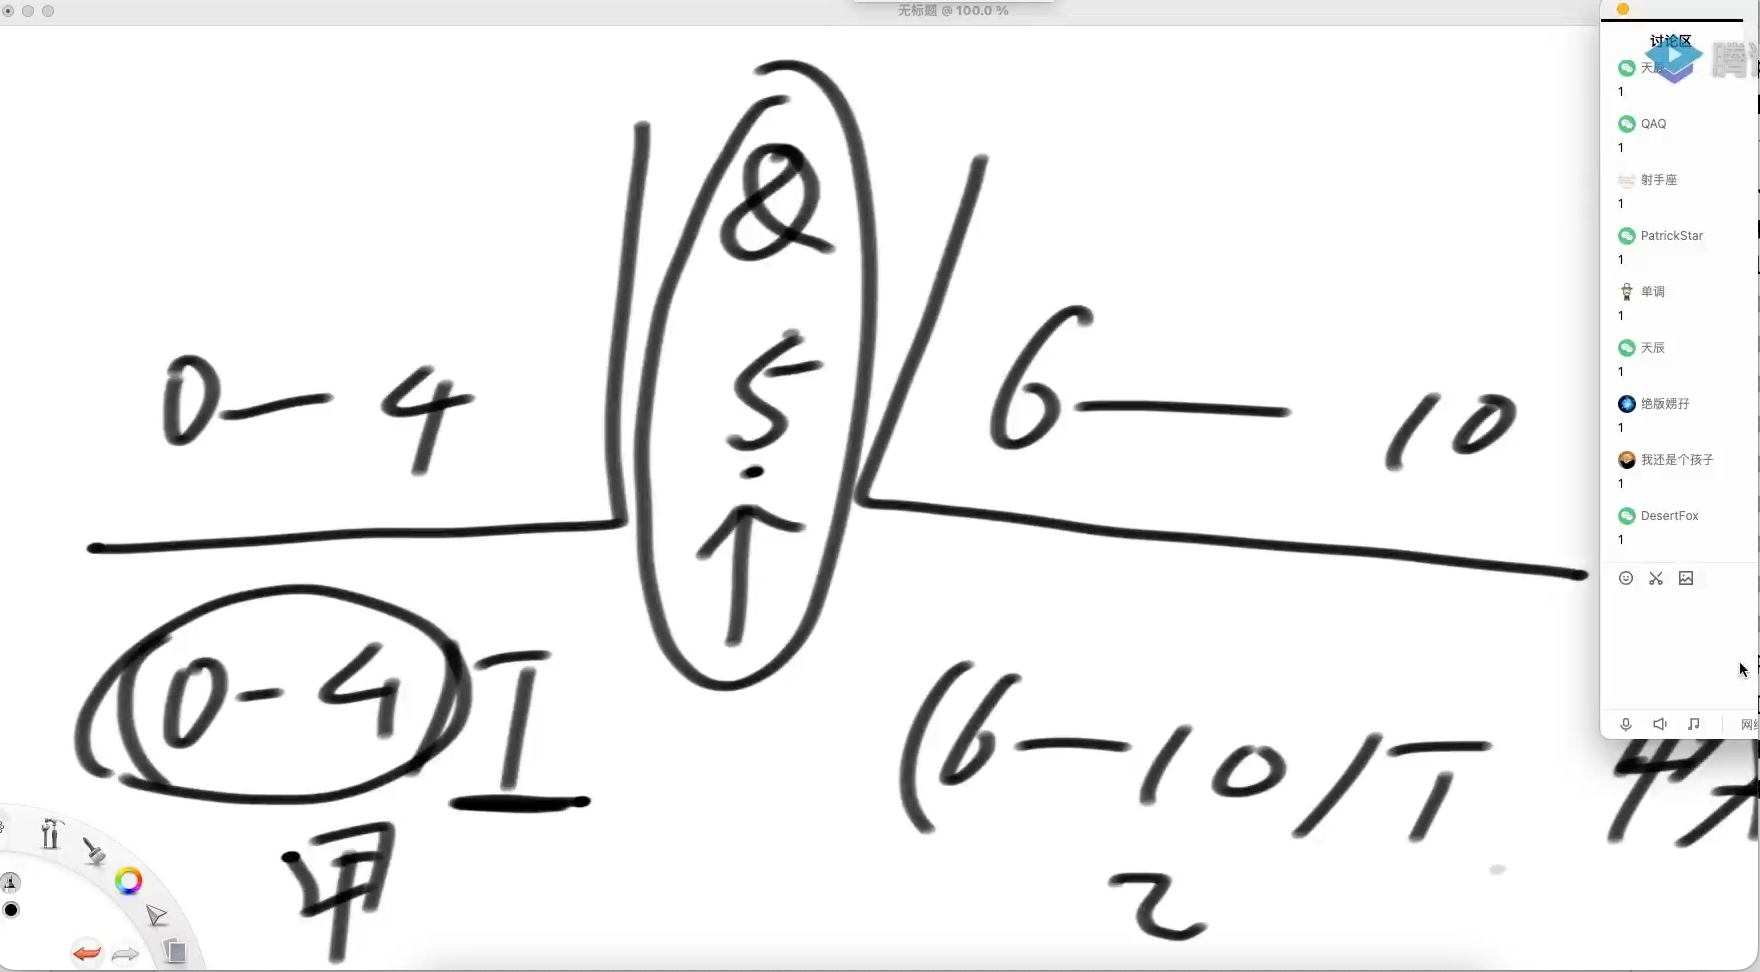 无标题 @ 100.0 %
&
0— 4
5
6— 10
0-4 T
(6—10/T
甲
乙
讨论区
天辰
1
QAQ
1
射手座
1
PatrickStar
1
单调
1
天辰
1
绝版娚孖
1
我还是个孩子
1
DesertFox
1